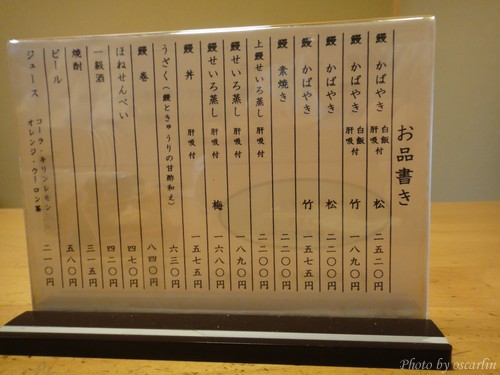 お品書き
鰻 かばやき 白飯 肝吸付 松 二五二〇円
鰻 かばやき 白飯 肝吸付 竹 一八九〇円
鰻 かばやき 松 二二〇〇円
鰻 かばやき 竹 一五七五円
鰻 素焼き 二二〇〇円
上鰻せいろ蒸し 肝吸付 二二〇〇円
鰻せいろ蒸し 肝吸付 一八九〇円
鰻せいろ蒸し 肝吸付 梅 一六八〇円
鰻 丼 肝吸付 一五七五円
うざく(鰻ときゅうりの甘酢和え) 六三〇円
鰻 巻 八四〇円
ほねせんべい 四七〇円
一級酒 四二〇円
焼酎 三一五円
ビール 五八〇円
ジュース コーラ・キリンレモン オレンジ・ウーロン茶 二一〇円
Photo by oscarlin